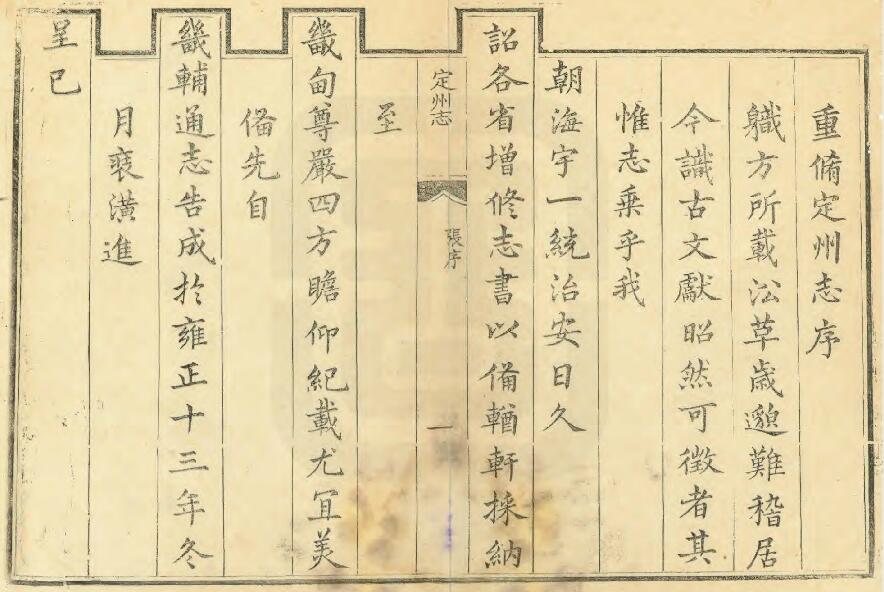 重脩定州志序
軄方所載沿革歳邈難稽居
今識古文獻昭然可徵者其
惟志乗乎我
朝海宇一統治安日久
詔各省增修志書以備輶軒採納
定州志
張序
一
至
畿甸尊嚴四方瞻仰紀載尤冝美
備先自
畿輔通志告成於雍正十三年冬
月裒潢進
呈已